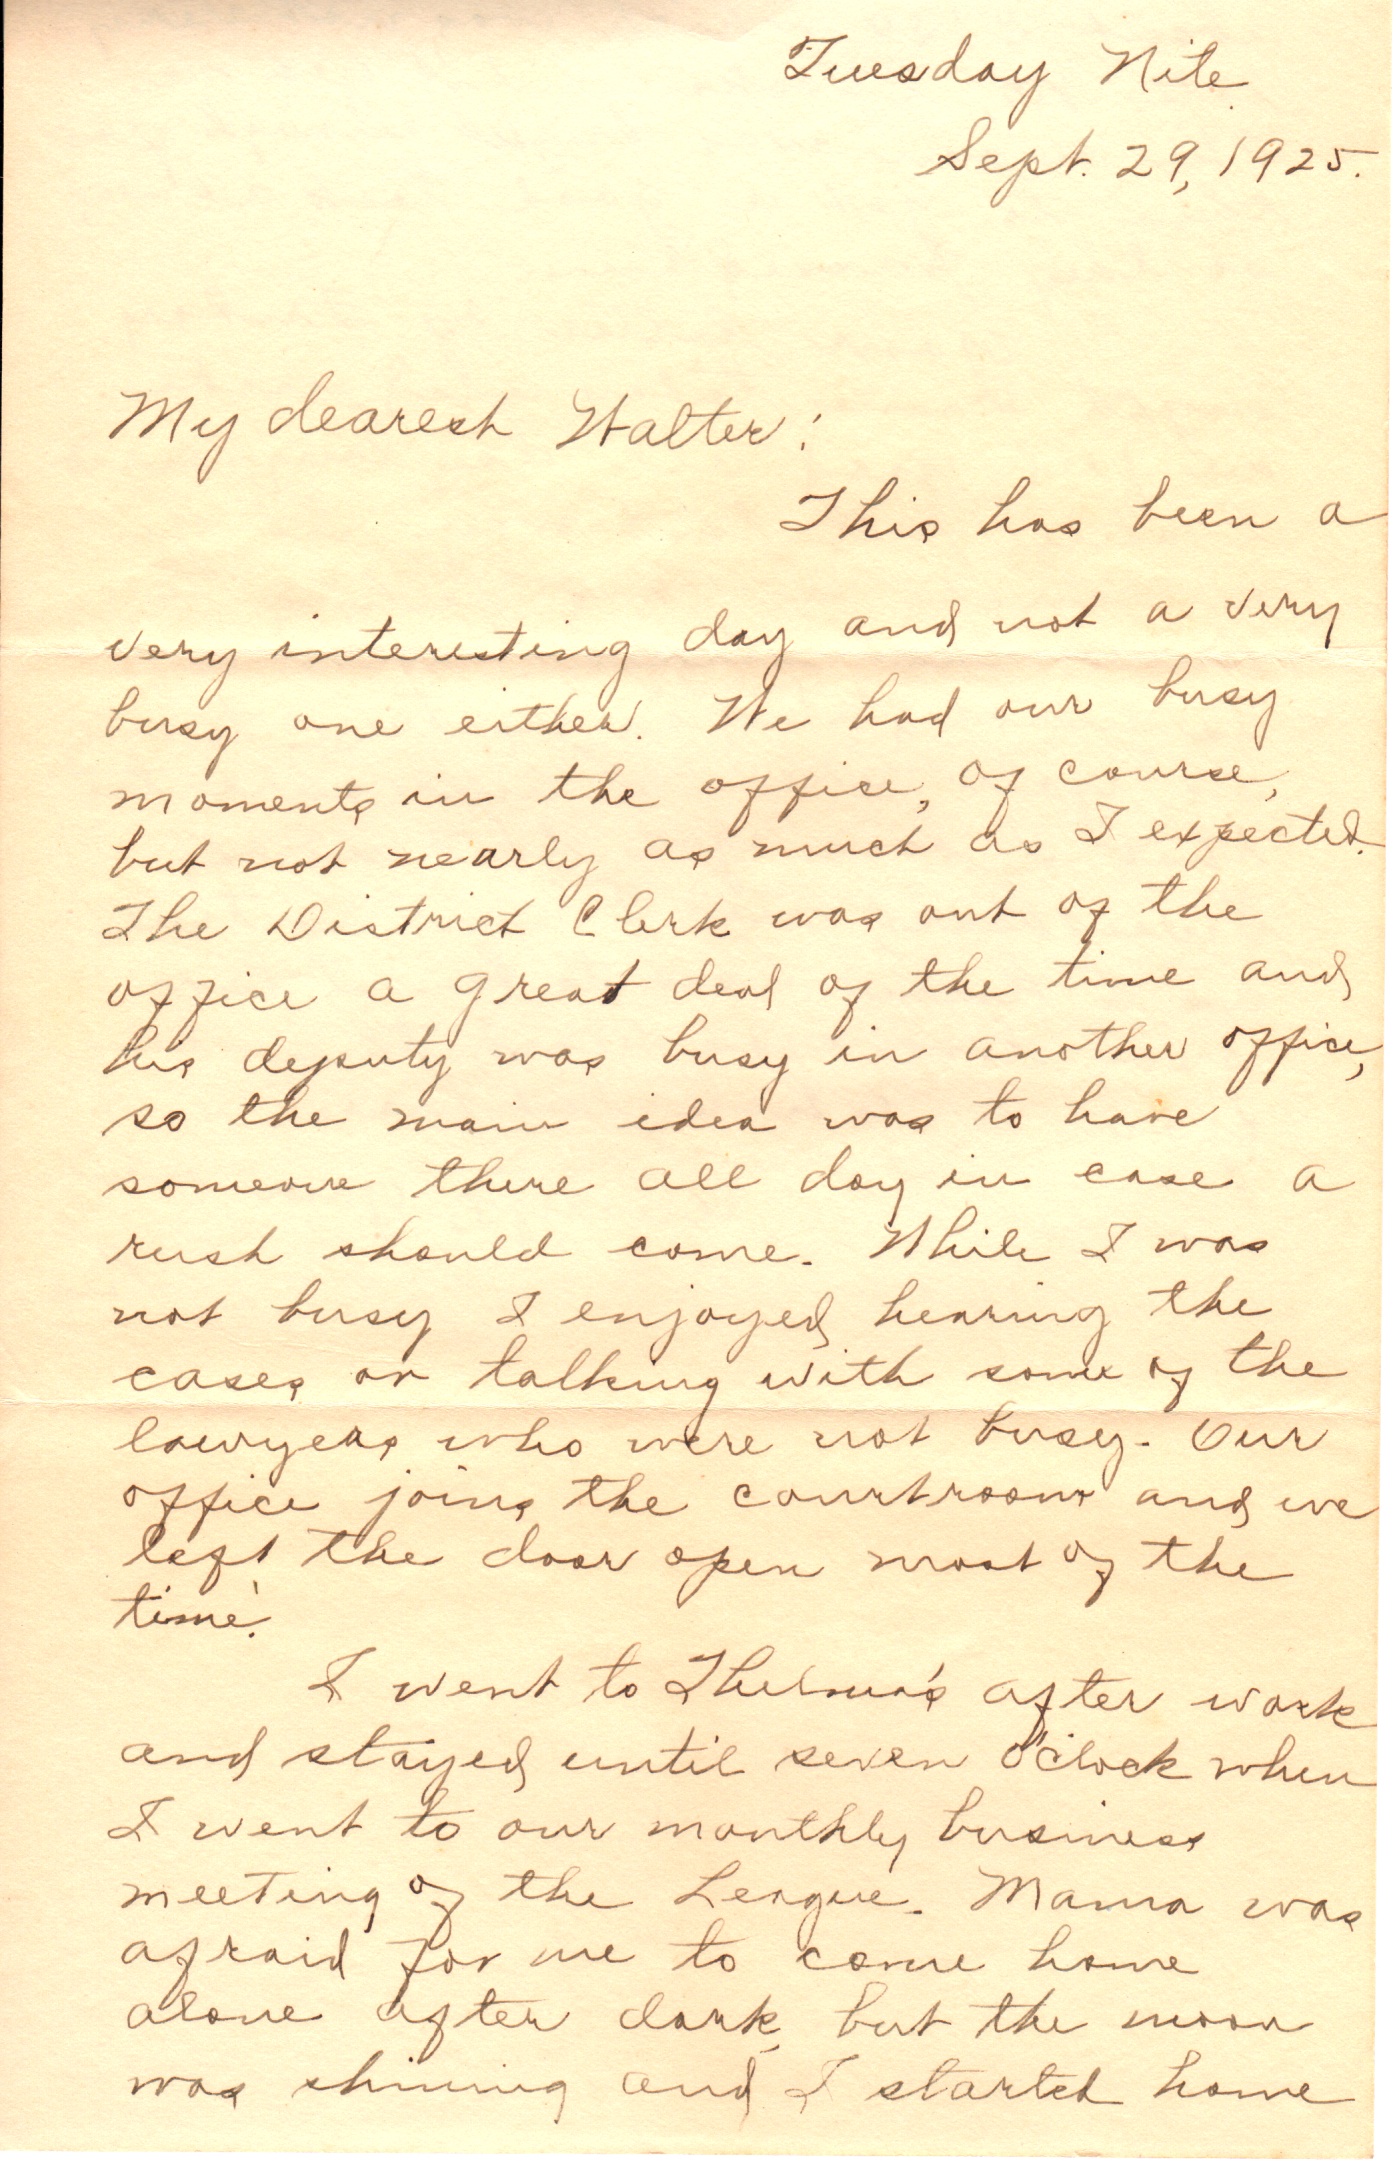 Tuesday Nite
Sept. 29, 1925.
My dearest Walter:
This has been a
very interesting day and not a very
busy one either. We had our busy
moments in the office, of course,
but not nearly as much as I expected.
The District Clerk was out of the
office a great deal of the time and
his deputy was busy in another office,
so the main idea was to have
someone there all day in case a
rush should come. While I was
not busy I enjoyed hearing the
cases or talking with some of the
lawyers who were not busy. Our
office joins the courtroom and we
left the door open most of the
time.
I went to Thelma's after work
and stayed until seven o'clock when
I went to our monthly business
meeting of the League. Mama was
afraid for me to come home
alone after dark, but the moon
was shining and I started home